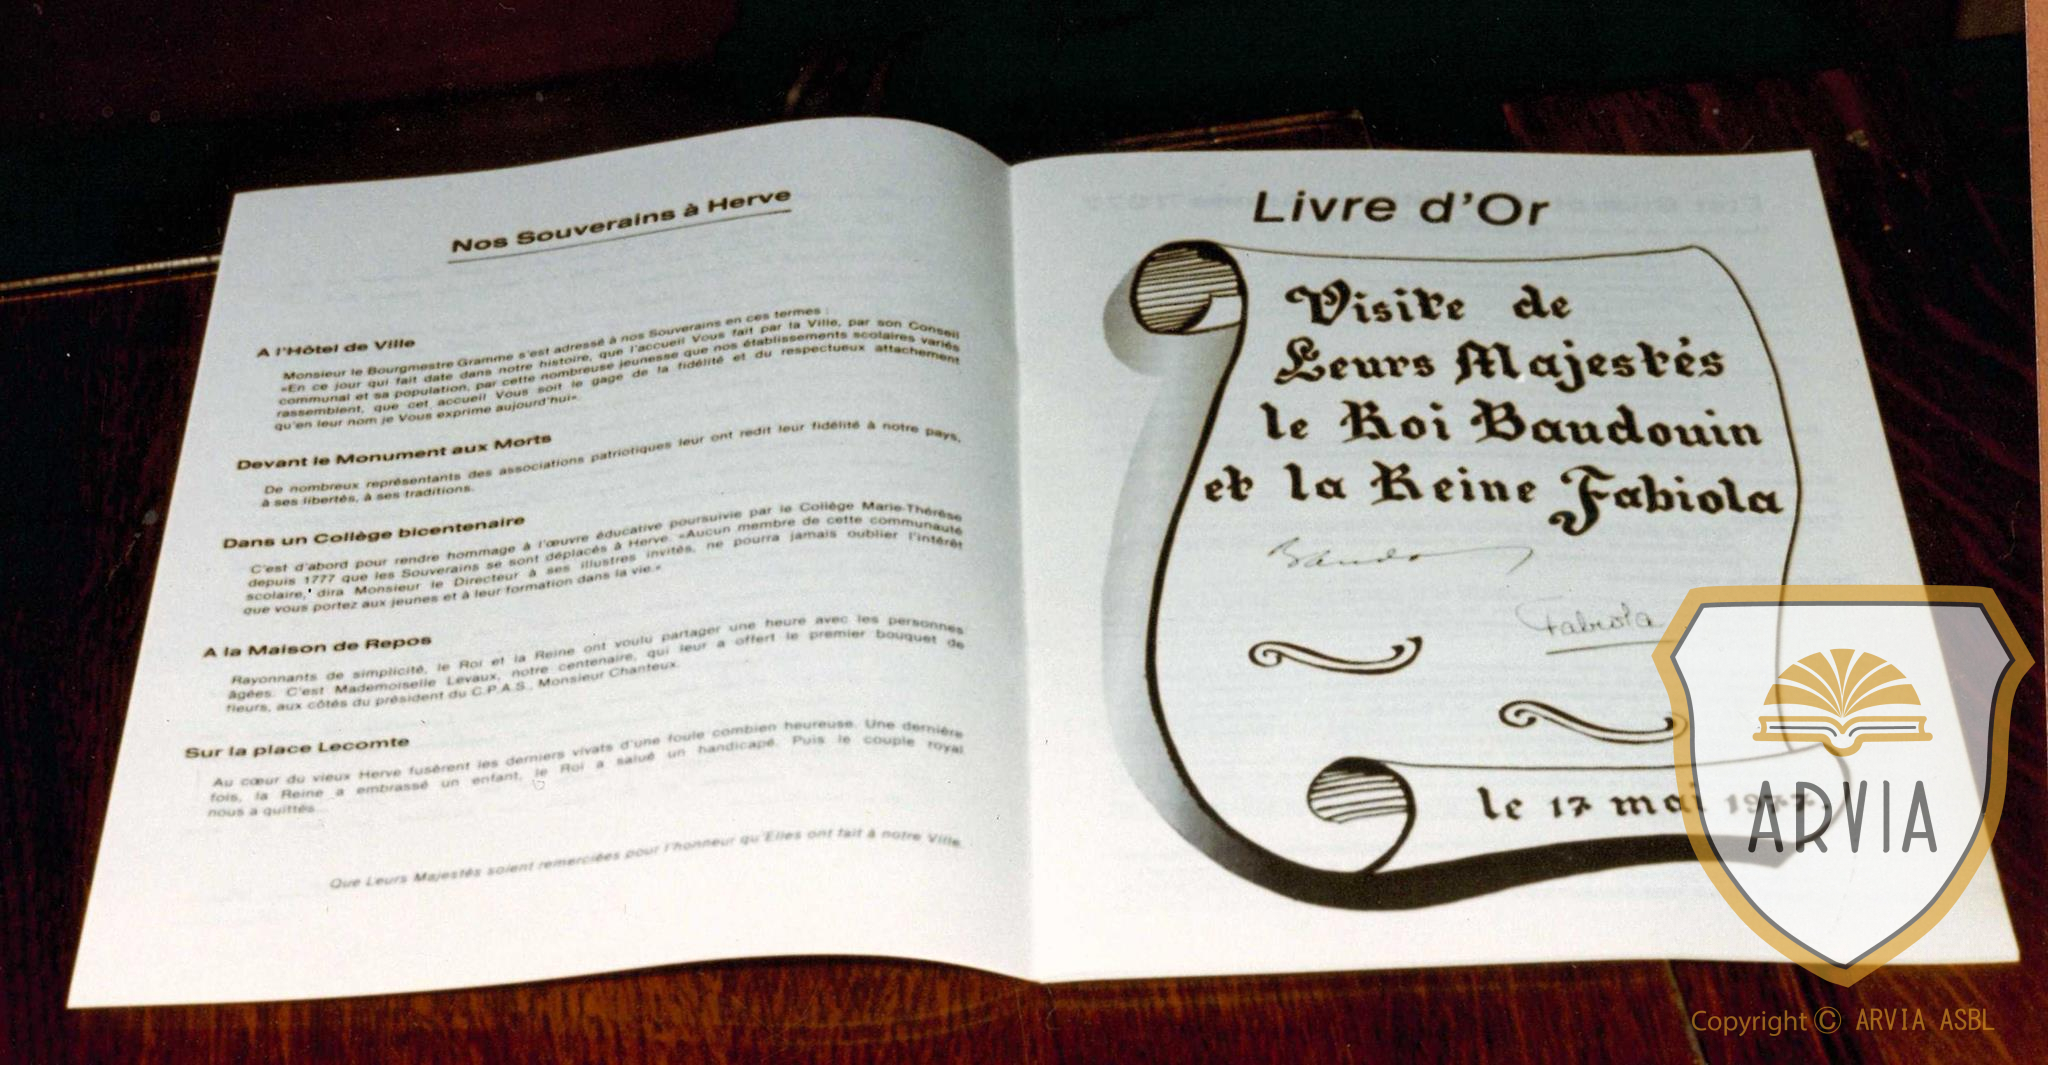 Nos Souverains à Herve
A l'Hôtel de Ville
Monsieur le Bourgmestre Gramme s'est adressé à nos Souverains en ces termes :
«En ce jour qui fait date dans notre histoire, que l'accueil Vous fait par la Ville, par son Conseil
communal et sa population, par cette nombreuse jeunesse que nos établissements scolaires variés
rassemblent, que cet accueil Vous soit le gage de la fidélité et du respectueux attachement
qu'en leur nom je Vous exprime aujourd'hui».
Devant le Monument aux Morts
De nombreux représentants des associations patriotiques leur ont redit leur fidélité à notre pays,
à ses libertés, à ses traditions.
Dans un Collège bicentenaire
C'est d'abord pour rendre hommage à l'œuvre éducative poursuivie par le Collège Marie-Thérèse
depuis 1777 que les Souverains se sont déplacés à Herve. «Aucun membre de cette communauté
scolaire, dira Monsieur le Directeur à ses illustres invités, ne pourra jamais oublier l'intérêt
que vous portez aux jeunes et à leur formation dans la vie.»
A la Maison de Repos
Rayonnants de simplicité, le Roi et la Reine ont voulu partager une heure avec les personnes
âgées. C'est Mademoiselle Levaux, notre centenaire, qui leur a offert le premier bouquet de
fleurs, aux côtés du président du C.P.A.S., Monsieur Chanteux.
Sur la place Lecomte
Au cœur du vieux Herve fusèrent les derniers vivats d'une foule combien heureuse. Une dernière
fois, la Reine a embrassé un enfant, le Roi a salué un handicapé. Puis le couple royal
nous a quittés...
Que Leurs Majestés soient remerciées pour l'honneur qu'Elles ont fait à notre Ville.
Livre d'Or
Visite de
Leurs Majestés
le Roi Baudouin
et la Reine Fabiola
Baudouin
Fabiola
le 17 mai 1977.
ARVIA
Copyright © ARVIA ASBL